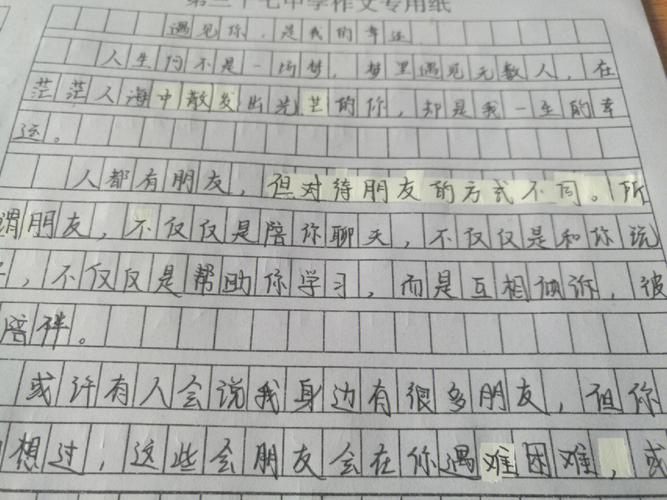 第三十七中学作文专用纸
遇见你,是我的幸运
人生何不是一场梦,梦里遇见无数人,在
茫茫人海中散发出光芒的你,却是我一生的幸
运。
人都有朋友,但对待朋友的方式不同。所
谓朋友,不仅仅是陪你聊天,不仅仅是和你玩
,不仅仅是帮助你学习,而是互相倾诉,彼
陪伴。
或许有人会说我身边有很多朋友,但你
想过,这些会朋友会在你遇难困难,或